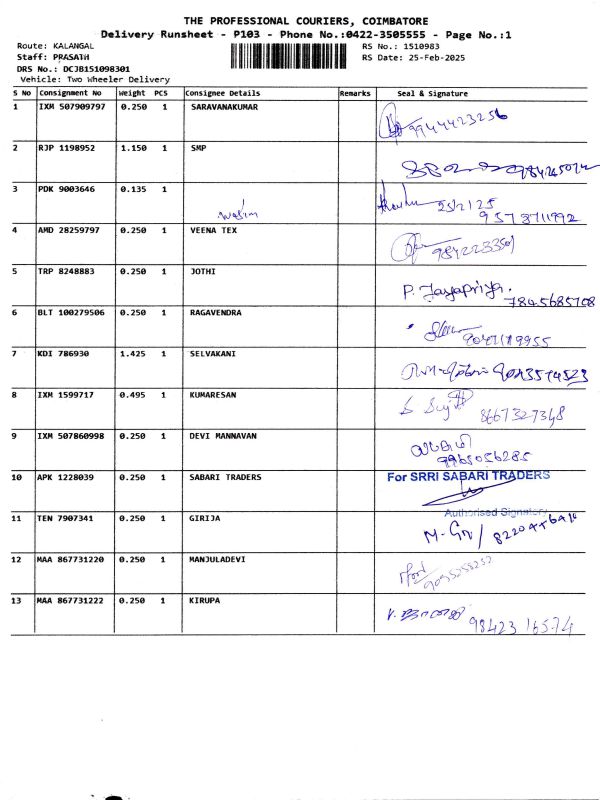 THE PROFESSIONAL COURIERS, COIMBATORE
Delivery Runsheet - P103 - Phone No.:0422-3505555 - Page No.:1
Route: KALANGAL RS No.: 1510983
Staff: PRASATH RS Date: 25-Feb-2025
DRS No.: DCJB151098301
Vehicle: Two Wheeler Delivery
S No Consignment No Weight PCS Consignee Details Remarks Seal & Signature
1 IXM 507909797 0.250 1 SARAVANAKUMAR
9944423256
2 RJP 1198952 1.150 1 SMP
3 PDK 9003646 0.135 1
wasim 25/2/25
9578711992
4 AMD 28259797 0.250 1 VEENA TEX
9842233501
5 TRP 8248883 0.250 1 JOTHI
P. Jayapriya.
7845685708
6 BLT 100279506 0.250 1 RAGAVENDRA
7 KDI 786930 1.425 1 SELVAKANI
8 IXM 1599717 0.495 1 KUMARESAN
8667327348
9 IXM 507860998 0.250 1 DEVI MANNAVAN
9965056285
10 APK 1228039 0.250 1 SABARI TRADERS For SRRI SABARI TRADERS
Authorised Signatory
11 TEN 7907341 0.250 1 GIRIJA
12 MAA 867731220 0.250 1 MANJULADEVI
13 MAA 867731222 0.250 1 KIRUPA
98423 16574